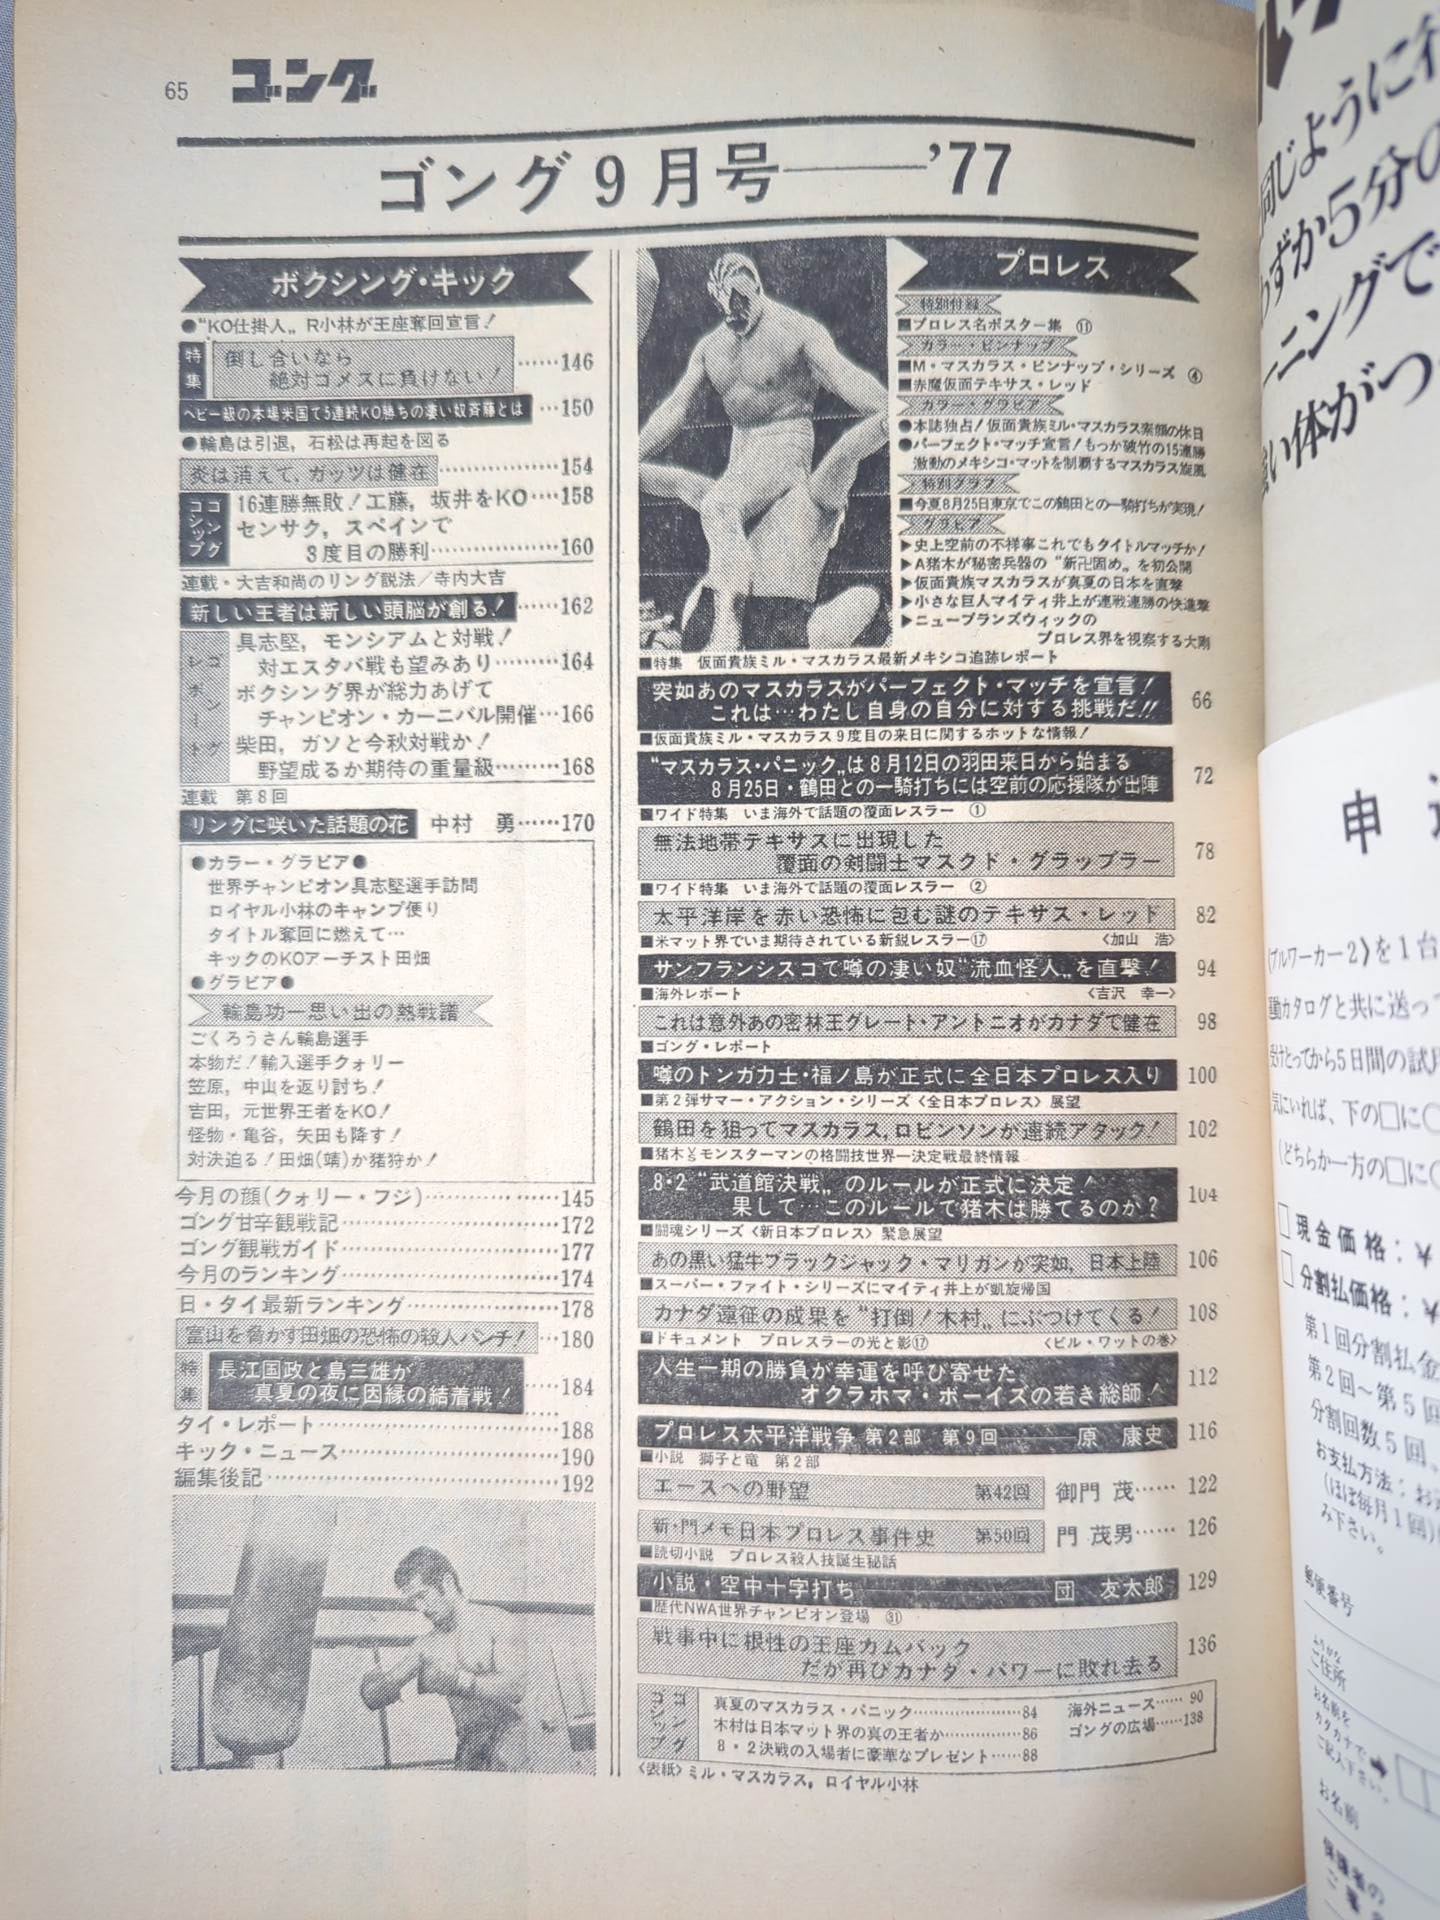 65 ゴング
ゴング9月号——’77
ボクシング・キック
●“KO仕掛人„ R小林が王座奪回宣言!
特集
倒し合いなら
絶対コメスに負けない!……146
ヘビー級の本場米国で5連続KO勝ちの凄い奴斉藤とは…150
●輪島は引退，石松は再起を図る
炎は消えて，ガッツは健在………………154
ゴングゴシップ
16連勝無敗！工藤，坂井をKO……158
センサク，スペインで
3度目の勝利………………160
連載・大吉和尚のリング説法／寺内大吉
新しい王者は新しい頭脳が創る！……162
ゴングレポート
具志堅，モンシアムと対戦！
対エスタバ戦も望みあり………164
ボクシング界が総力あげて
チャンピオン・カーニバル開催…166
柴田，ガソと今秋対戦か！
野望成るか期待の重量級………168
連載　第8回
リングに咲いた話題の花　中村　勇……170
●カラー・グラビア●
世界チャンピオン具志堅選手訪問
ロイヤル小林のキャンプ便り
タイトル奪回に燃えて…
キックのKOアーチスト田畑
●グラビア●
輪島功一思い出の熱戦譜
ごくろうさん輪島選手
本物だ！輸入選手クォリー
笠原，中山を返り討ち！
吉田，元世界王者をKO！
怪物・亀谷，矢田も降す！
対決迫る！田畑(靖)か猪狩か！
今月の顔(クォリー・フジ)………………145
ゴング甘辛観戦記………………172
ゴング観戦ガイド………………177
今月のランキング………………174
日・タイ最新ランキング………………178
富山を脅かす田畑の恐怖の殺人パンチ！…180
特集
長江国政と島三雄が
真夏の夜に因縁の結着戦！……184
タイ・レポート………………188
キック・ニュース………………190
編集後記………………192
プロレス
特別付録
■プロレス名ポスター集　⑪
カラー・ピンナップ
■M・マスカラス・ピンナップ・シリーズ　④
■赤魔仮面テキサス・レッド
カラー・グラビア
●本誌独占！仮面貴族ミル・マスカラス素顔の休日
●パーフェクト・マッチ宣言！もっか破竹の15連勝
激動のメキシコ・マットを制覇するマスカラス旋風
特別グラフ
■今夏8月25日東京でこの鶴田との一騎打ちが実現！
グラビア
▶史上空前の不祥事これでもタイトルマッチか！
▶A猪木が秘密兵器の“新卍固め„を初公開
▶仮面貴族マスカラスが真夏の日本を直撃
▶小さな巨人マイティ井上が連戦連勝の快進撃
▶ニューブランズウィックの
プロレス界を視察する大剛
■特集　仮面貴族ミル・マスカラス最新メキシコ追跡レポート
突如あのマスカラスがパーフェクト・マッチを宣言！
これは…わたし自身の自分に対する挑戦だ!!　66
■仮面貴族ミル・マスカラス9度目の来日に関するホットな情報！
“マスカラス・パニック„は8月12日の羽田来日から始まる
8月25日・鶴田との一騎打ちには空前の応援隊が出陣　72
■ワイド特集　いま海外で話題の覆面レスラー　①
無法地帯テキサスに出現した
覆面の剣闘士マスクド・グラップラー　78
■ワイド特集　いま海外で話題の覆面レスラー　②
太平洋岸を赤い恐怖に包む謎のテキサス・レッド　82
■米マット界でいま期待されている新鋭レスラー⑰　〈加山　浩〉
サンフランシスコで噂の凄い奴“流血怪人„を直撃！　94
■海外レポート　〈吉沢　幸一〉
これは意外あの密林王グレート・アントニオがカナダで健在　98
■ゴング・レポート
噂のトンガ力士・福ノ島が正式に全日本プロレス入り　100
■第2弾サマー・アクション・シリーズ〈全日本プロレス〉展望
鶴田を狙ってマスカラス，ロビンソンが連続アタック！　102
■猪木VSモンスターマンの格闘技世界一決定戦最終情報
8・2“武道館決戦„のルールが正式に決定！
果して…このルールで猪木は勝てるのか？　104
■闘魂シリーズ〈新日本プロレス〉緊急展望
あの黒い猛牛ブラックジャック・マリガンが突如，日本上陸　106
■スーパー・ファイト・シリーズにマイティ井上が凱旋帰国
カナダ遠征の成果を“打倒！木村„にぶつけてくる！　108
■ドキュメント　プロレスラーの光と影⑰　〈ビル・ワットの巻〉
人生一期の勝負が幸運を呼び寄せた
オクラホマ・ボーイズの若き総師！　112
プロレス太平洋戦争　第2部　第9回——原　康史　116
■小説　獅子と竜　第2部
エースへの野望　第42回　御門　茂……122
新・門メモ日本プロレス事件史　第50回　門　茂男……126
■読切小説　プロレス殺人技誕生秘話
小説・空中十字打ち————団　友太郎　129
■歴代NWA世界チャンピオン登場　㉛
戦事中に根性の王座カムバック
だが再びカナダ・パワーに敗れ去る　136
ゴングゴシップ
真夏のマスカラス・パニック………………84
木村は日本マット界の真の王者か…………86
8・2決戦の入場者に豪華なプレゼント……88
海外ニュース……90
ゴングの広場……138
〈表紙〉ミル・マスカラス，ロイヤル小林
同じように
わずか5分の
ーニングで
い体がつ
申
ブルワーカー2》を1台
運動カタログと共に送って
受けとってから5日間の試
気にいれば、下の□に○
(どちらか一方の□に○
□現金価格：
□分割払価格：
第1回分割払金
第2回～第5回
分割回数5回、
お支払方法：お
(ほぼ毎月1回)
み下さい。
郵便番号
ご住所
お名前を
カタカナで
ご記入下さい。
お名前
保護者の